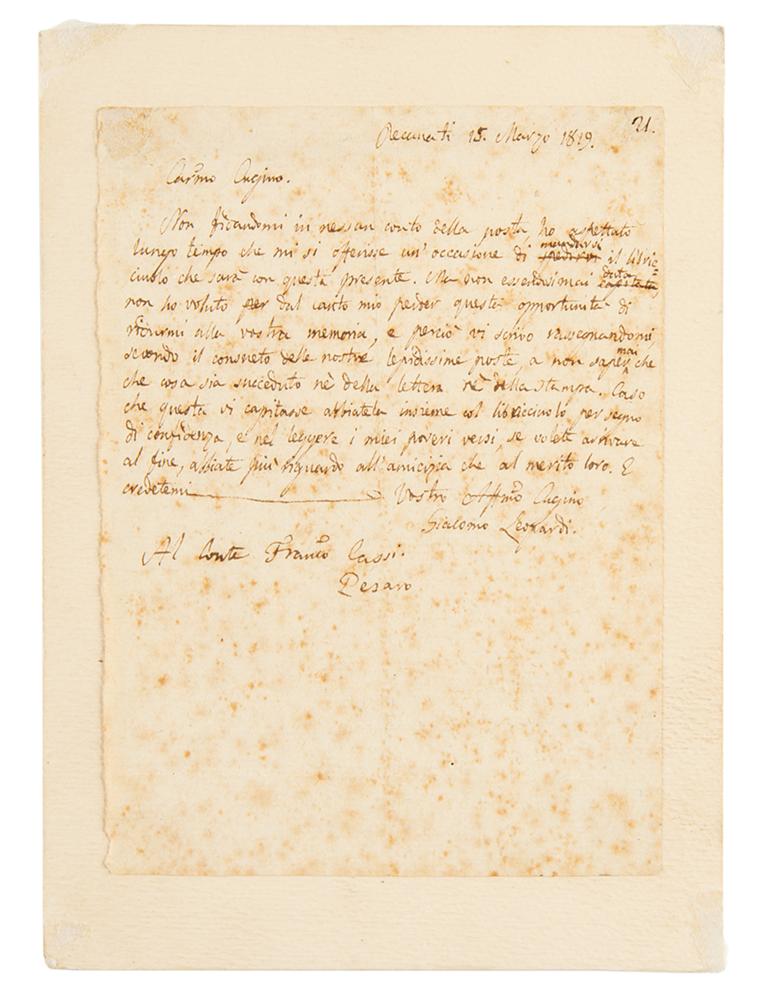 Recanati 15. Marzo 1819.
21.
Carmo Cugino.
Non fidandomi in nessun conto della posta ho aspettato
lungo tempo che mi si offerisse un' occasione di mandarvi il libric=
ciuolo che sarà con questa presente. Ma non essendosi mai data
non ho voluto per dal canto mio perder questa opportunità di
ridurmi alla vostra memoria, e perciò vi scrivo rassegnandomi
secondo il consueto delle nostre lepidissime poste, a non saper mai che
che cosa sia succeduto nè della lettera nè della stampa. Caso
che questa vi capitasse abbiatela insieme col libricciuolo per segno
di confidenza, e nel leggere i miei poveri versi, se volete arrivare
al fine, abbiate più riguardo all'amicizia che al merito loro. E
credetemi Vostro Affmo Cugino
Giacomo Leopardi.
Al Conte Franco Cassi.
Pesaro